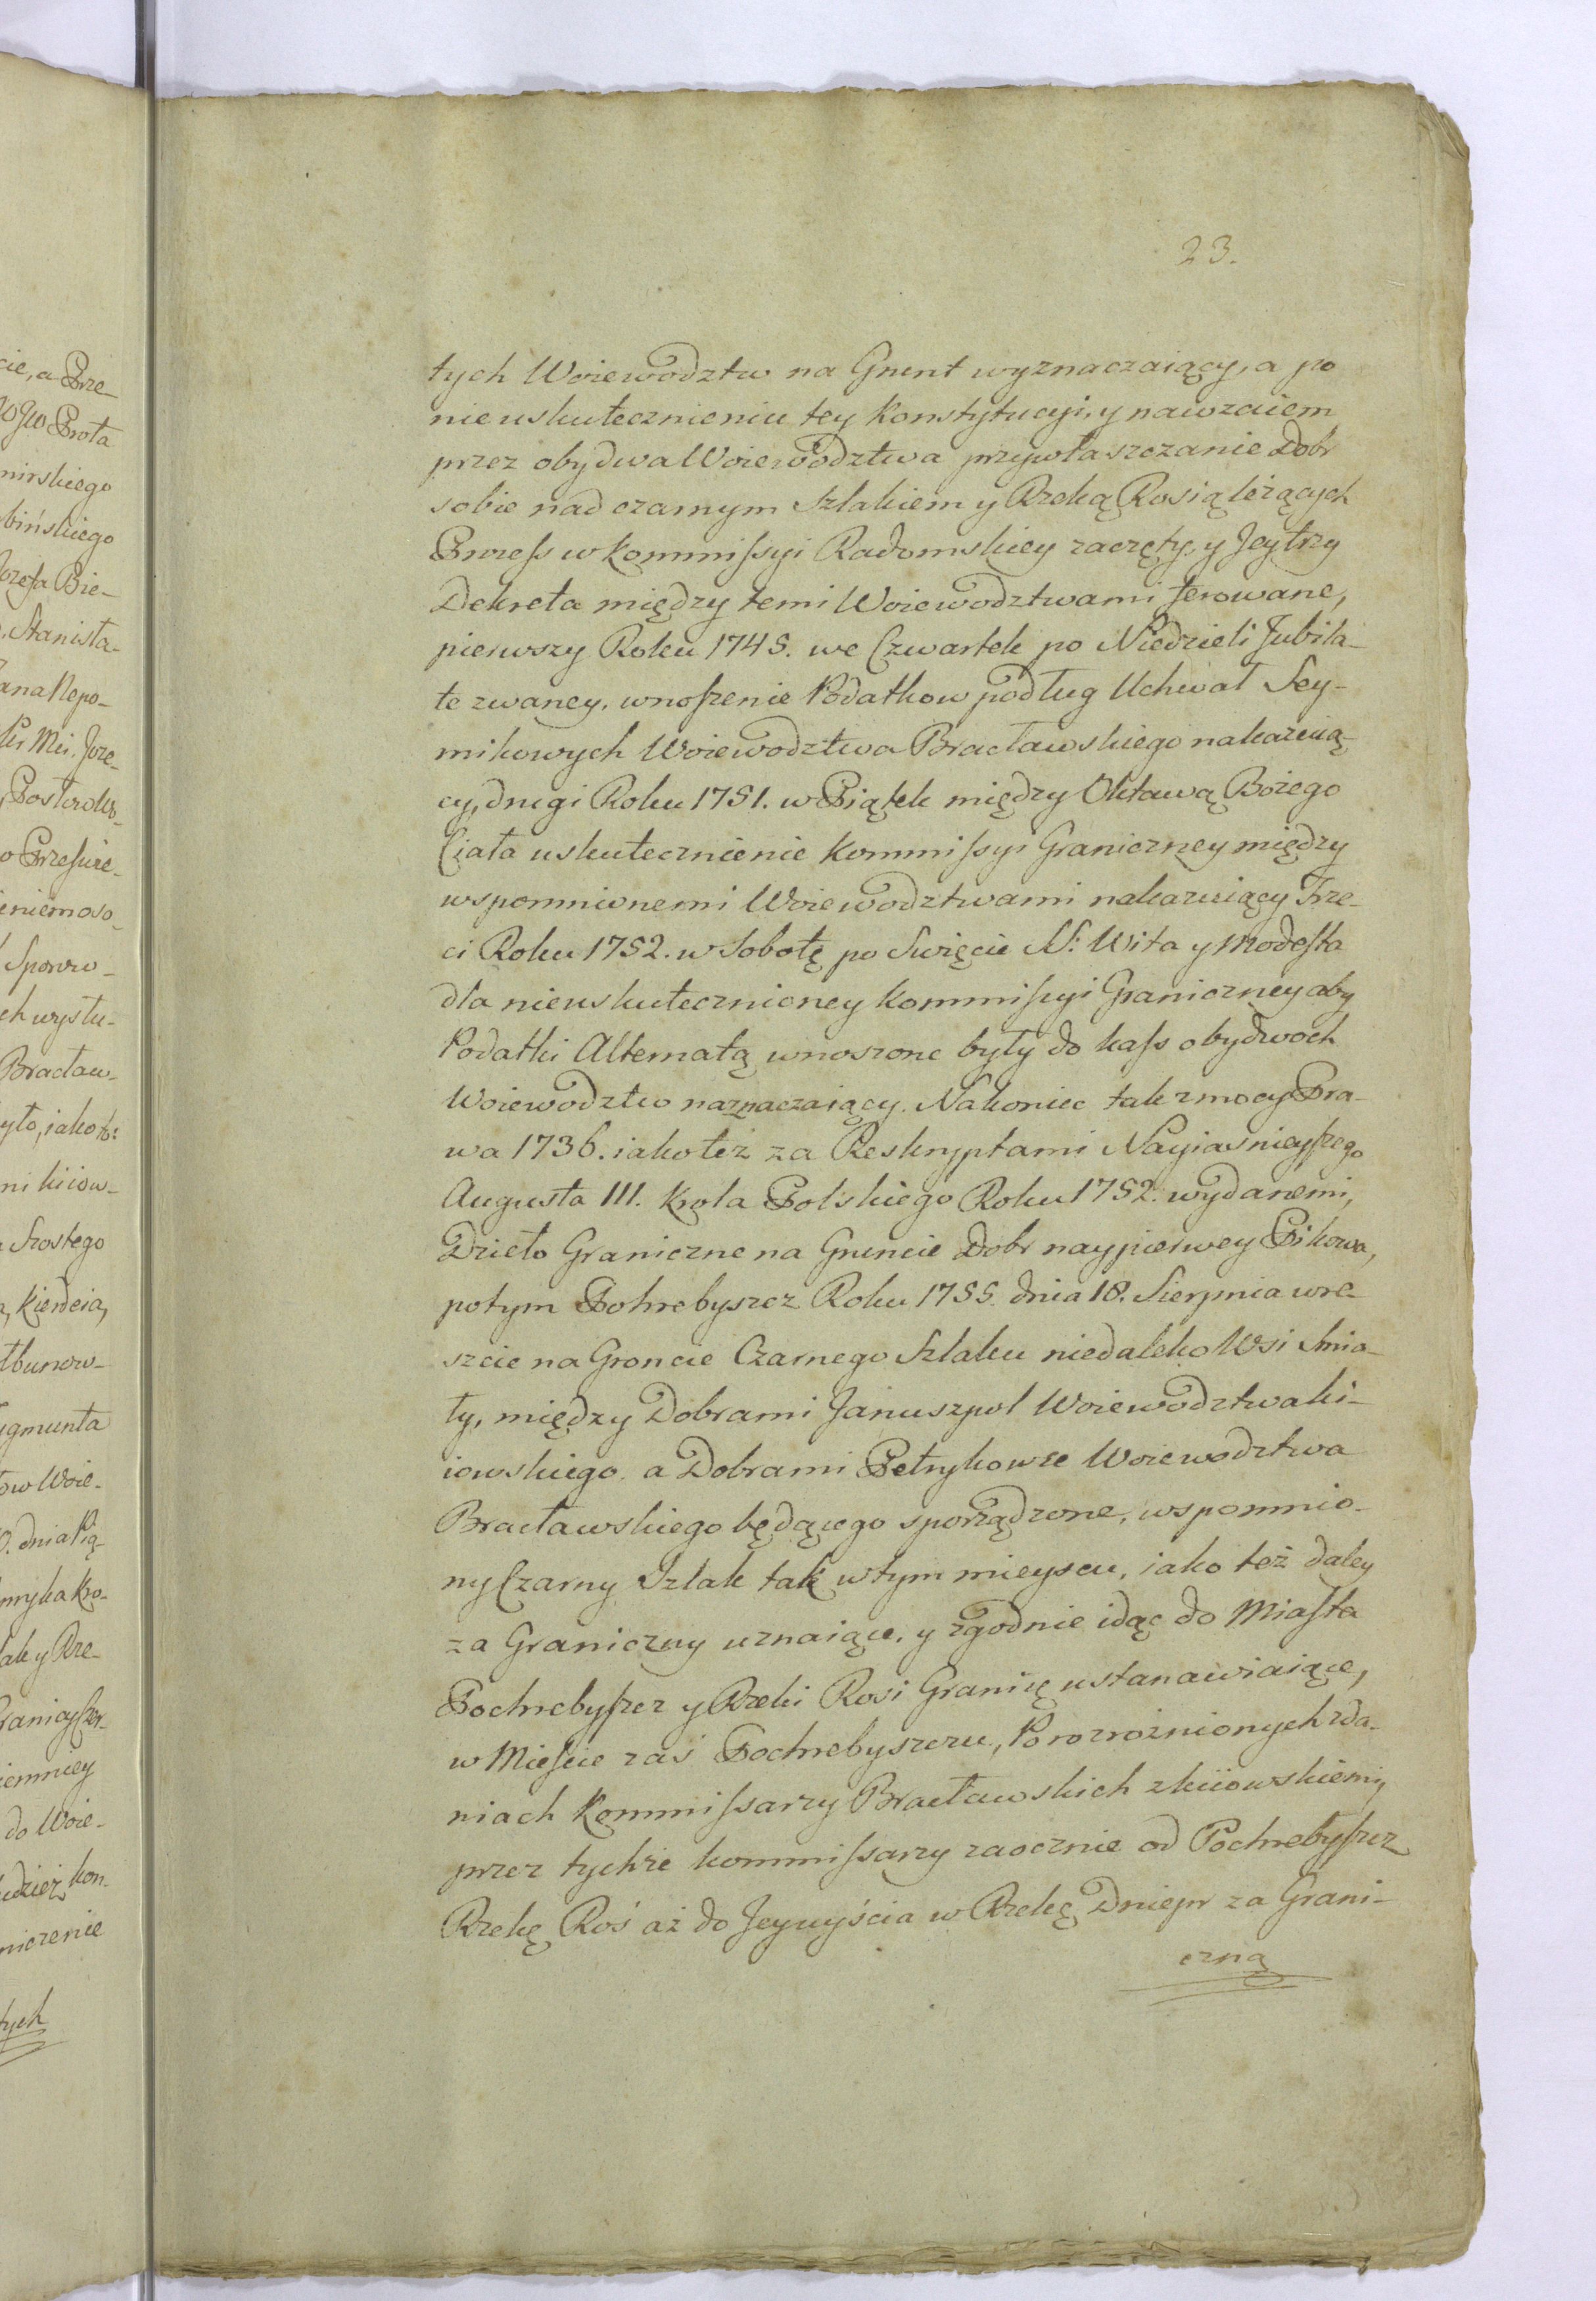 cie, a Prze-
WJW Prota
mirskiego
bińskiego
Jozefa Bie-
. Stanisła-
ana Nepo-
Joze-
o Przesuie-
eniem oso-
Sporzo-
ch wystu-
Bracław-
yło, iako to:
ni kiiow-
Szostego
, Kierdeia,
łbunow-
ygmunta
ow Woie-
0. dnia Pią-
nryka Kro-
lak y Rze-
Granicy Czer-
iemniey
do Woie-
udzież kon-
niczenie
tych
23.
tych Woiewodztw na Grunt wyznaczaiący, a po
nieuskutecznieniu tey Konstytucyi, y nawzaiem
przez obydwa Woiewodztwa przywłaszczanie Dobr
sobie nad czarnym Szlakiem y Rzeką Rosią leżących
Process w Kommissyi Radomskiey zaczęty, y Jey trzy
Dekreta między temi Woiewodztwami ferowane,
pierwszy Roku 1745. we Czwartek po Niedzieli Jubila-
te zwaney, wnoszenie Podatkow podług Uchwał Sey-
mikowych Woiewodztwa Bracławskiego nakazuią-
cy, drugi Roku 1751. w Piątek między Oktawą Bożego
Ciała uskutecznienie Kommissyi Graniczney między
wspomnionemi Woiewodztwami nakazuiący Trze-
ci Roku 1752. w Sobotę po Swięcie S: Wita y Modesta
dla nieuskutecznioney Kommissyi Graniczney aby
Podatki Alternatą wnoszone były do kass obydwoch
Woiewodztw naznaczaiący. Nakoniec tak z mocy Pra-
wa 1736. iako też za Reskryptami Nayiasnieyszego
Augusta III. Krola Polskiego Roku 1752. wydanemi,
Dzieło Graniczne na Gruncie Dobr naypierwey Pikowa,
potym Pohrebyszcz Roku 1755. dnia 18. Sierpnia wre-
szcie na Groncie Czarnego Szlaku niedaleko Wsi Smia-
ły, między Dobrami Januszpol Woiewodztwa Ki-
iowskiego, a Dobrami Petrykowze Woiewodztwa
Bracławskiego będącego sporządzone, wspomnio-
ny Czarny Szlak tak w tym mieyscu, iako też daley
za Graniczny uznaiące, y zgodnie idąc do Miasta
Pochrebyszcz y Rzeki Rosi Granicę ustanawiaiące,
w Mieście zaś Pochrebyszczu, Po rozrożnionych zda-
niach Kommissarzy Bracławskich z kiiowskiemi,
przez tychże kommissarzy zaocznie od Pochrebyszcz
Rzekę Roś aż do Jey uyścia w Rzekę Dniepr za Grani-
czną